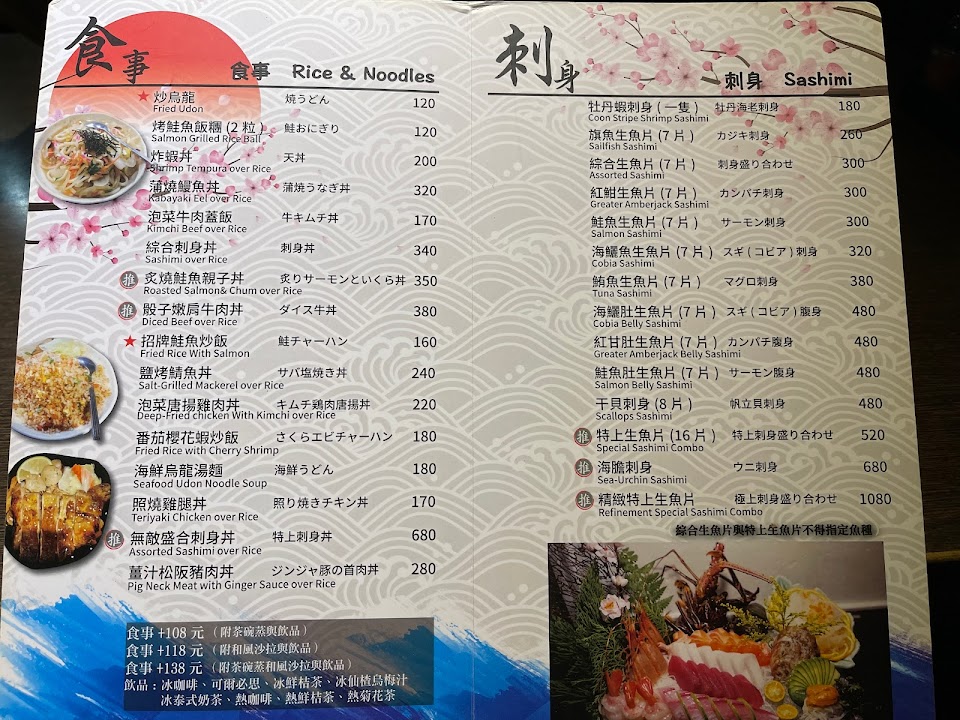 食事
食事 Rice & Noodles
★炒烏龍 焼うどん 120
Fried Udon
烤鮭魚飯糰 (2 粒) 鮭おにぎり 120
Salmon Grilled Rice Ball
炸蝦丼 天丼 200
Shrimp Tempura over Rice
蒲燒鰻魚丼 蒲焼うなぎ丼 320
Kabayaki Eel over Rice
泡菜牛肉蓋飯 牛キムチ丼 170
Kimchi Beef over Rice
綜合刺身丼 刺身丼 340
Sashimi over Rice
推 炙燒鮭魚親子丼 炙りサーモンといくら丼 350
Roasted Salmon& Chum over Rice
推 骰子嫩肩牛肉丼 ダイス牛丼 380
Diced Beef over Rice
★招牌鮭魚炒飯 鮭チャーハン 160
Fried Rice With Salmon
鹽烤鯖魚丼 サバ塩焼き丼 240
Salt-Grilled Mackerel over Rice
泡菜唐揚雞肉丼 キムチ鶏肉唐揚丼 220
Deep-Fried chicken With Kimchi over Rice
番茄櫻花蝦炒飯 さくらエビチャーハン 180
Fried Rice with Cherry Shrimp
海鮮烏龍湯麵 海鮮うどん 180
Seafood Udon Noodle Soup
照燒雞腿丼 照り焼きチキン丼 170
Teriyaki Chicken over Rice
推 無敵盛合刺身丼 特上刺身丼 680
Assorted Sashimi over Rice
薑汁松阪豬肉丼 ジンジャ豚の首肉丼 280
Pig Neck Meat with Ginger Sauce over Rice
食事 +108 元（附茶碗蒸與飲品）
食事 +118 元（附和風沙拉與飲品）
食事 +138 元（附茶碗蒸和風沙拉與飲品）
飲品：冰咖啡、可爾必思、冰鮮桔茶、冰仙楂烏梅汁
冰泰式奶茶、熱咖啡、熱鮮桔茶、熱菊花茶
刺身
刺身 Sashimi
牡丹蝦刺身 ( 一隻 ) 牡丹海老刺身 180
Coon Stripe Shrimp Sashimi
旗魚生魚片 (7 片) カジキ刺身 260
Sailfish Sashimi
綜合生魚片 (7 片) 刺身盛り合わせ 300
Assorted Sashimi
紅魽生魚片 (7 片) カンパチ刺身 300
Greater Amberjack Sashimi
鮭魚生魚片 (7 片) サーモン刺身 300
Salmon Sashimi
海鱺魚生魚片 (7 片) スギ ( コビア ) 刺身 320
Cobia Sashimi
鮪魚生魚片 (7 片) マグロ刺身 380
Tuna Sashimi
海鱺肚生魚片 (7 片) スギ ( コビア ) 腹身 480
Cobia Belly Sashimi
紅甘肚生魚片 (7 片) カンパチ腹身 480
Greater Amberjack Belly Sashimi
鮭魚肚生魚片 (7 片) サーモン腹身 480
Salmon Belly Sashimi
干貝刺身 (8 片) 帆立貝刺身 480
Scallops Sashimi
推 特上生魚片 (16 片) 特上刺身盛り合わせ 520
Special Sashimi Combo
推 海膽刺身 ウニ刺身 680
Sea-Urchin Sashimi
推 精緻特上生魚片 極上刺身盛り合わせ 1080
Refinement Special Sashimi Combo
綜合生魚片與特上生魚片不得指定魚種